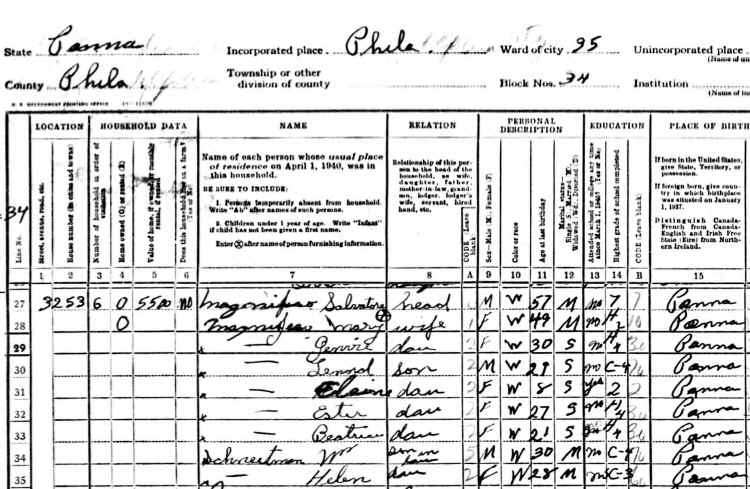 State Penna Incorporated place Phila. Ward of city 35 Unincorporated place
(Name of
County Phila Township or other division of county Block Nos. 34 Institution
(Name of
LOCATION HOUSEHOLD DATA NAME RELATION PERSONAL DESCRIPTION EDUCATION PLACE OF BIRTH
Line No.
Street, avenue, road, etc.
House number (in cities and towns)
Number of household in order of visitation
Home owned (O) or rented (R)
Value of home, if owned, or monthly rental, if rented
Does this household live on a farm? (Yes or No)
Name of each person whose usual place of residence on April 1, 1940, was in this household.
BE SURE TO INCLUDE:
1. Persons temporarily absent from household. Write "Ab" after names of such persons.
2. Children under 1 year of age. Write "Infant" if child has not been given a first name.
Enter ⊗ after name of person furnishing information.
Relationship of this person to the head of the household, as wife, daughter, father, mother-in-law, grandson, lodger, lodger's wife, servant, hired hand, etc.
CODE (Leave blank)
Sex—Male (M), Female (F)
Color or race
Age at last birthday
Highest grade of school completed
CODE (Leave blank)
If born in the United States, give State, Territory, or possession.
If foreign born, give country in which birthplace was situated on January 1, 1937.
Distinguish Canada-French from Canada-English and Irish Free State (Eire) from Northern Ireland.
34
1 2 3 4 5 6 7 8 A 9 10 11 12 13 14 B 15
27 3253 6 O 5500 no Salvatore head M W 57 M no 7 Penna
28 O Mary ⊗ wife F W 49 M no H Penna
29 — dau F W 30 S no H4 Penna
30 — Lenord son M W 29 S no C-4 Penna
31 — Elaine dau F W 8 S yes 2 Penna
32 — Ester dau F W 27 S no H4 Penna
33 — dau F W 21 S H4 Penna
34 Wm son in law M W 30 M no C-4 Penna
35 — Helen dau F W 28 M no C-3 Penna